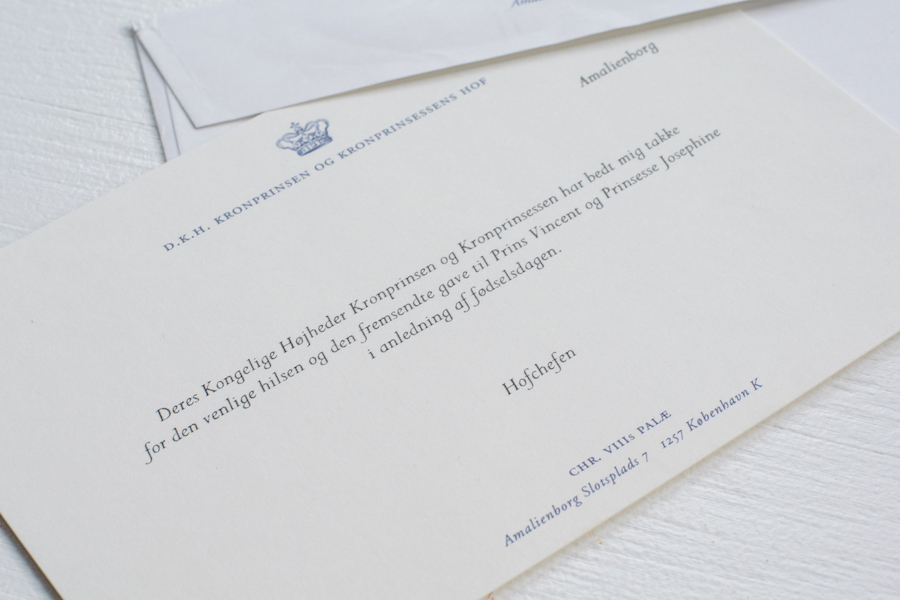 Amalienborg
D.K.H. KRONPRINSEN OG KRONPRINSESSENS HOF
Deres Kongelige Højheder Kronprinsen og Kronprinsessen har bedt mig takke
for den venlige hilsen og den fremsendte gave til Prins Vincent og Prinsesse Josephine
i anledning af fødselsdagen.
Hofchefen
CHR. VIIIs PALÆ
Amalienborg Slotsplads 7 1257 København K